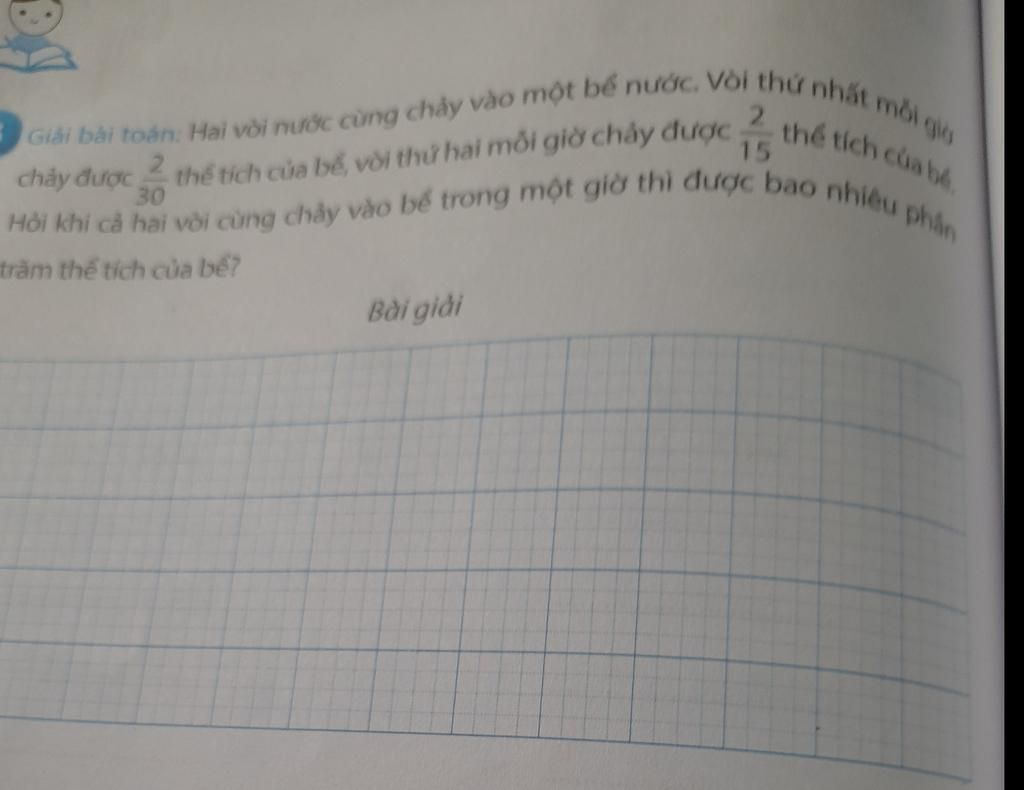 Giải bài toán: Hai vòi nước cùng chảy vào một bể nước. Vòi thứ nhất mỗi giờ
chảy được 2/30 thể tích của bể, vòi thứ hai mỗi giờ chảy được 2/15 thể tích của bể.
Hỏi khi cả hai vòi cùng chảy vào bể trong một giờ thì được bao nhiêu phần
trăm thể tích của bể?
Bài giải